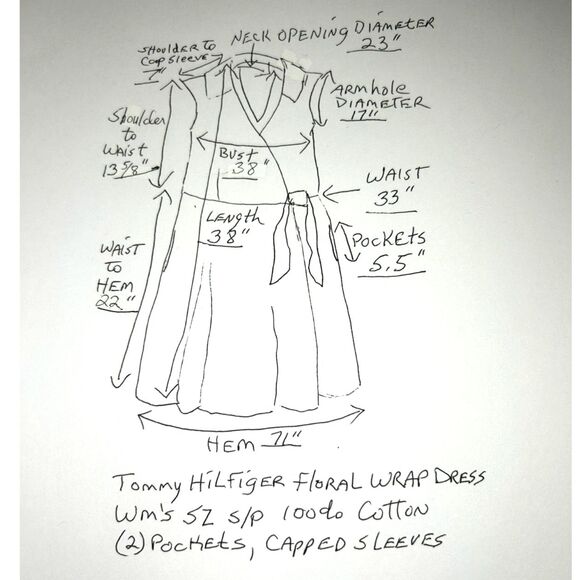 NECK OPENING DIAMETER
23"
Shoulder to
Cap Sleeve
7"
Armhole
DIAMETER
17"
Shoulder
to
Waist
13 5/8"
BUST
38"
WAIST
33"
LENGTH
38"
POCKETS
5.5"
WAIST
to
HEM
22"
HEM 71"
Tommy HILFIGER FLORAL WRAP DRESS
Wm's SZ S/P 100% Cotton
(2) POCKETS, CAPPED SLEEVES